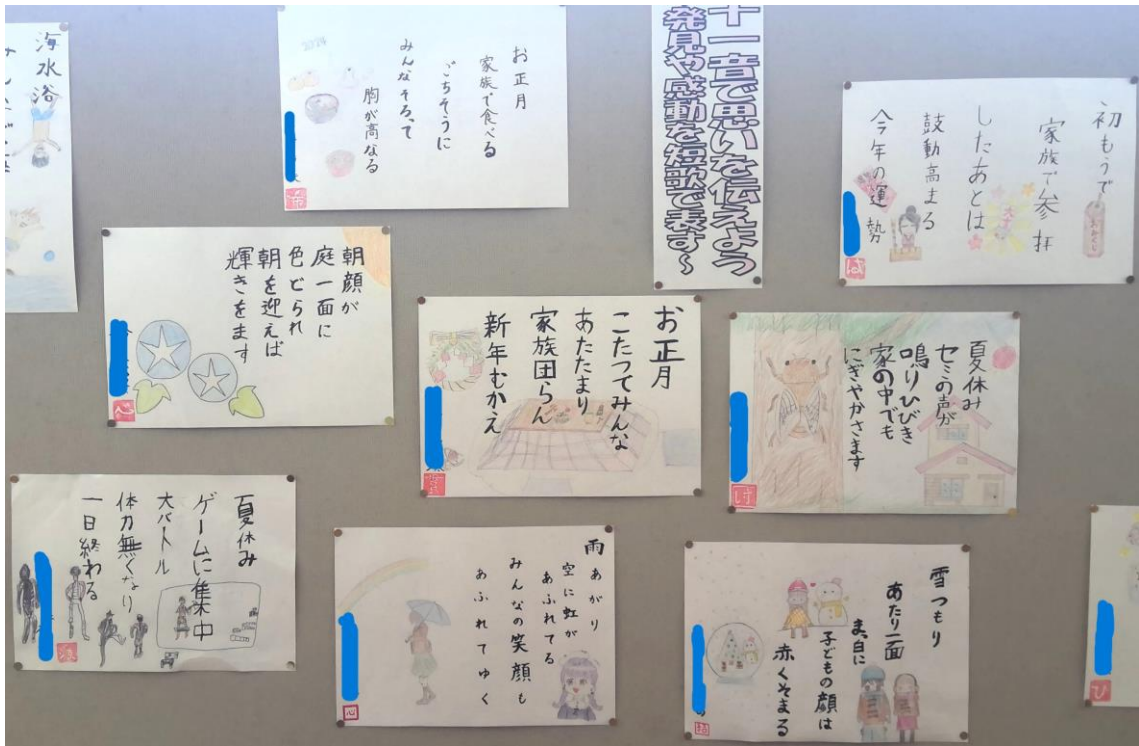 海水浴
お正月
家族で食べる
ごちそうに
みんなそろって
胸が高なる
2024
十一音で思いを伝えよう
発見や感動を短歌で表す〜
初もうで
家族で参拝
したあとは
鼓動高まる
今年の運勢
おみくじ
朝顔が
庭一面に
色どられ
朝を迎えば
輝きをます
心
お正月
こたつでみんな
あたたまり
家族団らん
新年むかえ
夏休み
セミの声が
鳴りひびき
家の中でも
にぎやかさます
け
夏休み
ゲームに集中
大バトル
体力無くなり
一日終わる
雨あがり
空に虹が
あふれてる
みんなの笑顔も
あふれてゆく
心
雪つもり
あたり一面
ま、白に
子どもの顔は
赤くそまる
結
ひ